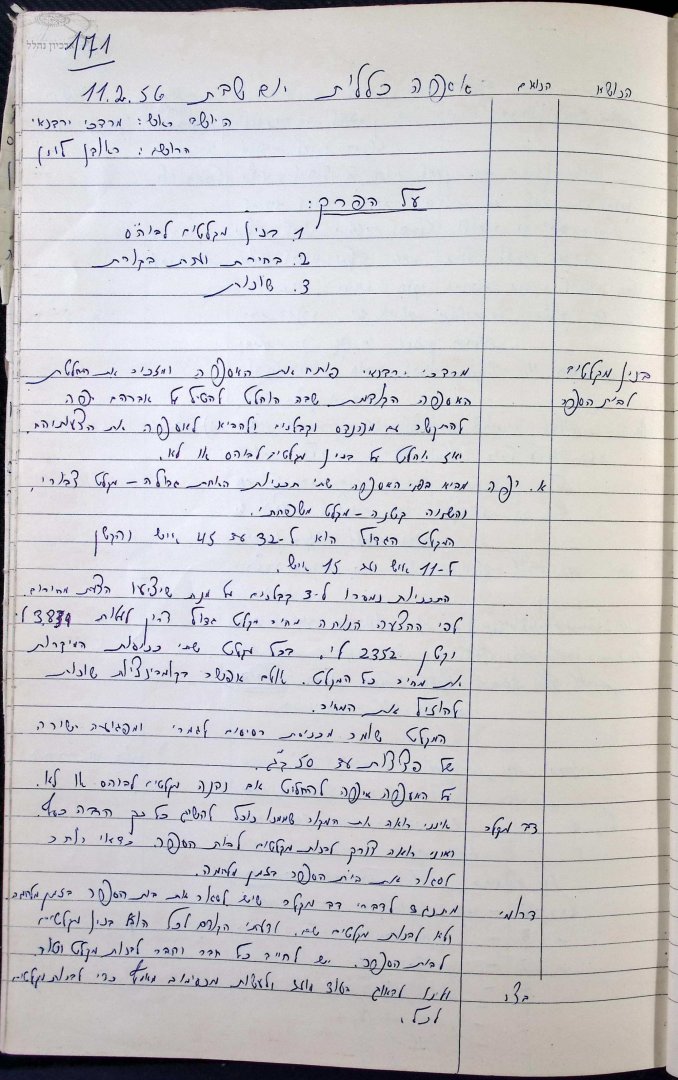 171
ארכיון נהלל
הנושא הנואם אסיפה כללית יום שבת 11.2.56
היושב ראש: מרדכי ירדנאי
הרושם: ראובן
על הפרק:
1. בנין מקלטים לביה"ס
2. בחירת ועדת בקורת
3. שונות
בנין מקלטים מרדכי ירדנאי פותח את האספה ומזכיר את החלטת
לבית הספר האספה הקודמת שבה הוחלט להטיל על אברהם יפה
להתקשר עם מהנדס וקבלנים ולהביא לאספה את הצעותיהם.
ואז נחליט על בנין מקלטים לביהס או לא.
א. יפה מביא בפני האספה שתי תכניות האחת גדולה - מקלט צבורי,
והשניה קטנה - מקלט משפחתי.
המקלט הגדול הוא ל-32 עד 45 איש והקטן
ל-11 איש ועד 15 איש.
התכניות נמסרו ל-3 קבלנים על מנת שיציעו הצעת מחירים.
לפי ההצעה הנוחה מחיר מקלט גדול לעלות
וקטן 2352 ל"י. בכל מקלט שתי כניסות המיקרות
את מחיר כל המקלט. אולם אפשר בקומבינציות שונות
להוזיל את המחיר.
המקלט שומר מכניסת רסיסים לגמרי ומפגיעה ישירה
של פצצות עד 50 ק"ג.
על האספה להחליט אם נבנה מקלטים לביהס או לא.
דב מקלר אינני רואה את המקור שממנו נוכל להשיג כל כך הרבה כסף.
ואינני רואה צורך לבנות מקלטים לבית הספר. כדאי יותר
לסגור את בית הספר בזמן מלחמה.
דרומי מתנגד לדברי דב מקלר שיש לסגור את בית הספר בזמן מלחמה
ולא לבנות מקלטים שם. לדעתי הקודם לכל הוא בנין מקלטים
לבית הספר. יש לחייב כל חבר וחבר לבנות מקלט
בצר עלינו לדאוג ולעשות מכסימום מאמץ כדי לבנות מקלטים
לכל.